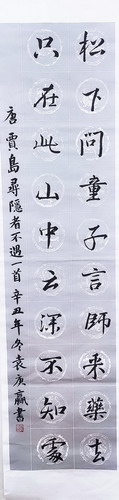 松下問童子言師采藥去
只在此山中云深不知處
唐賈島尋隱者不遇一首辛丑年冬袁庚贏書